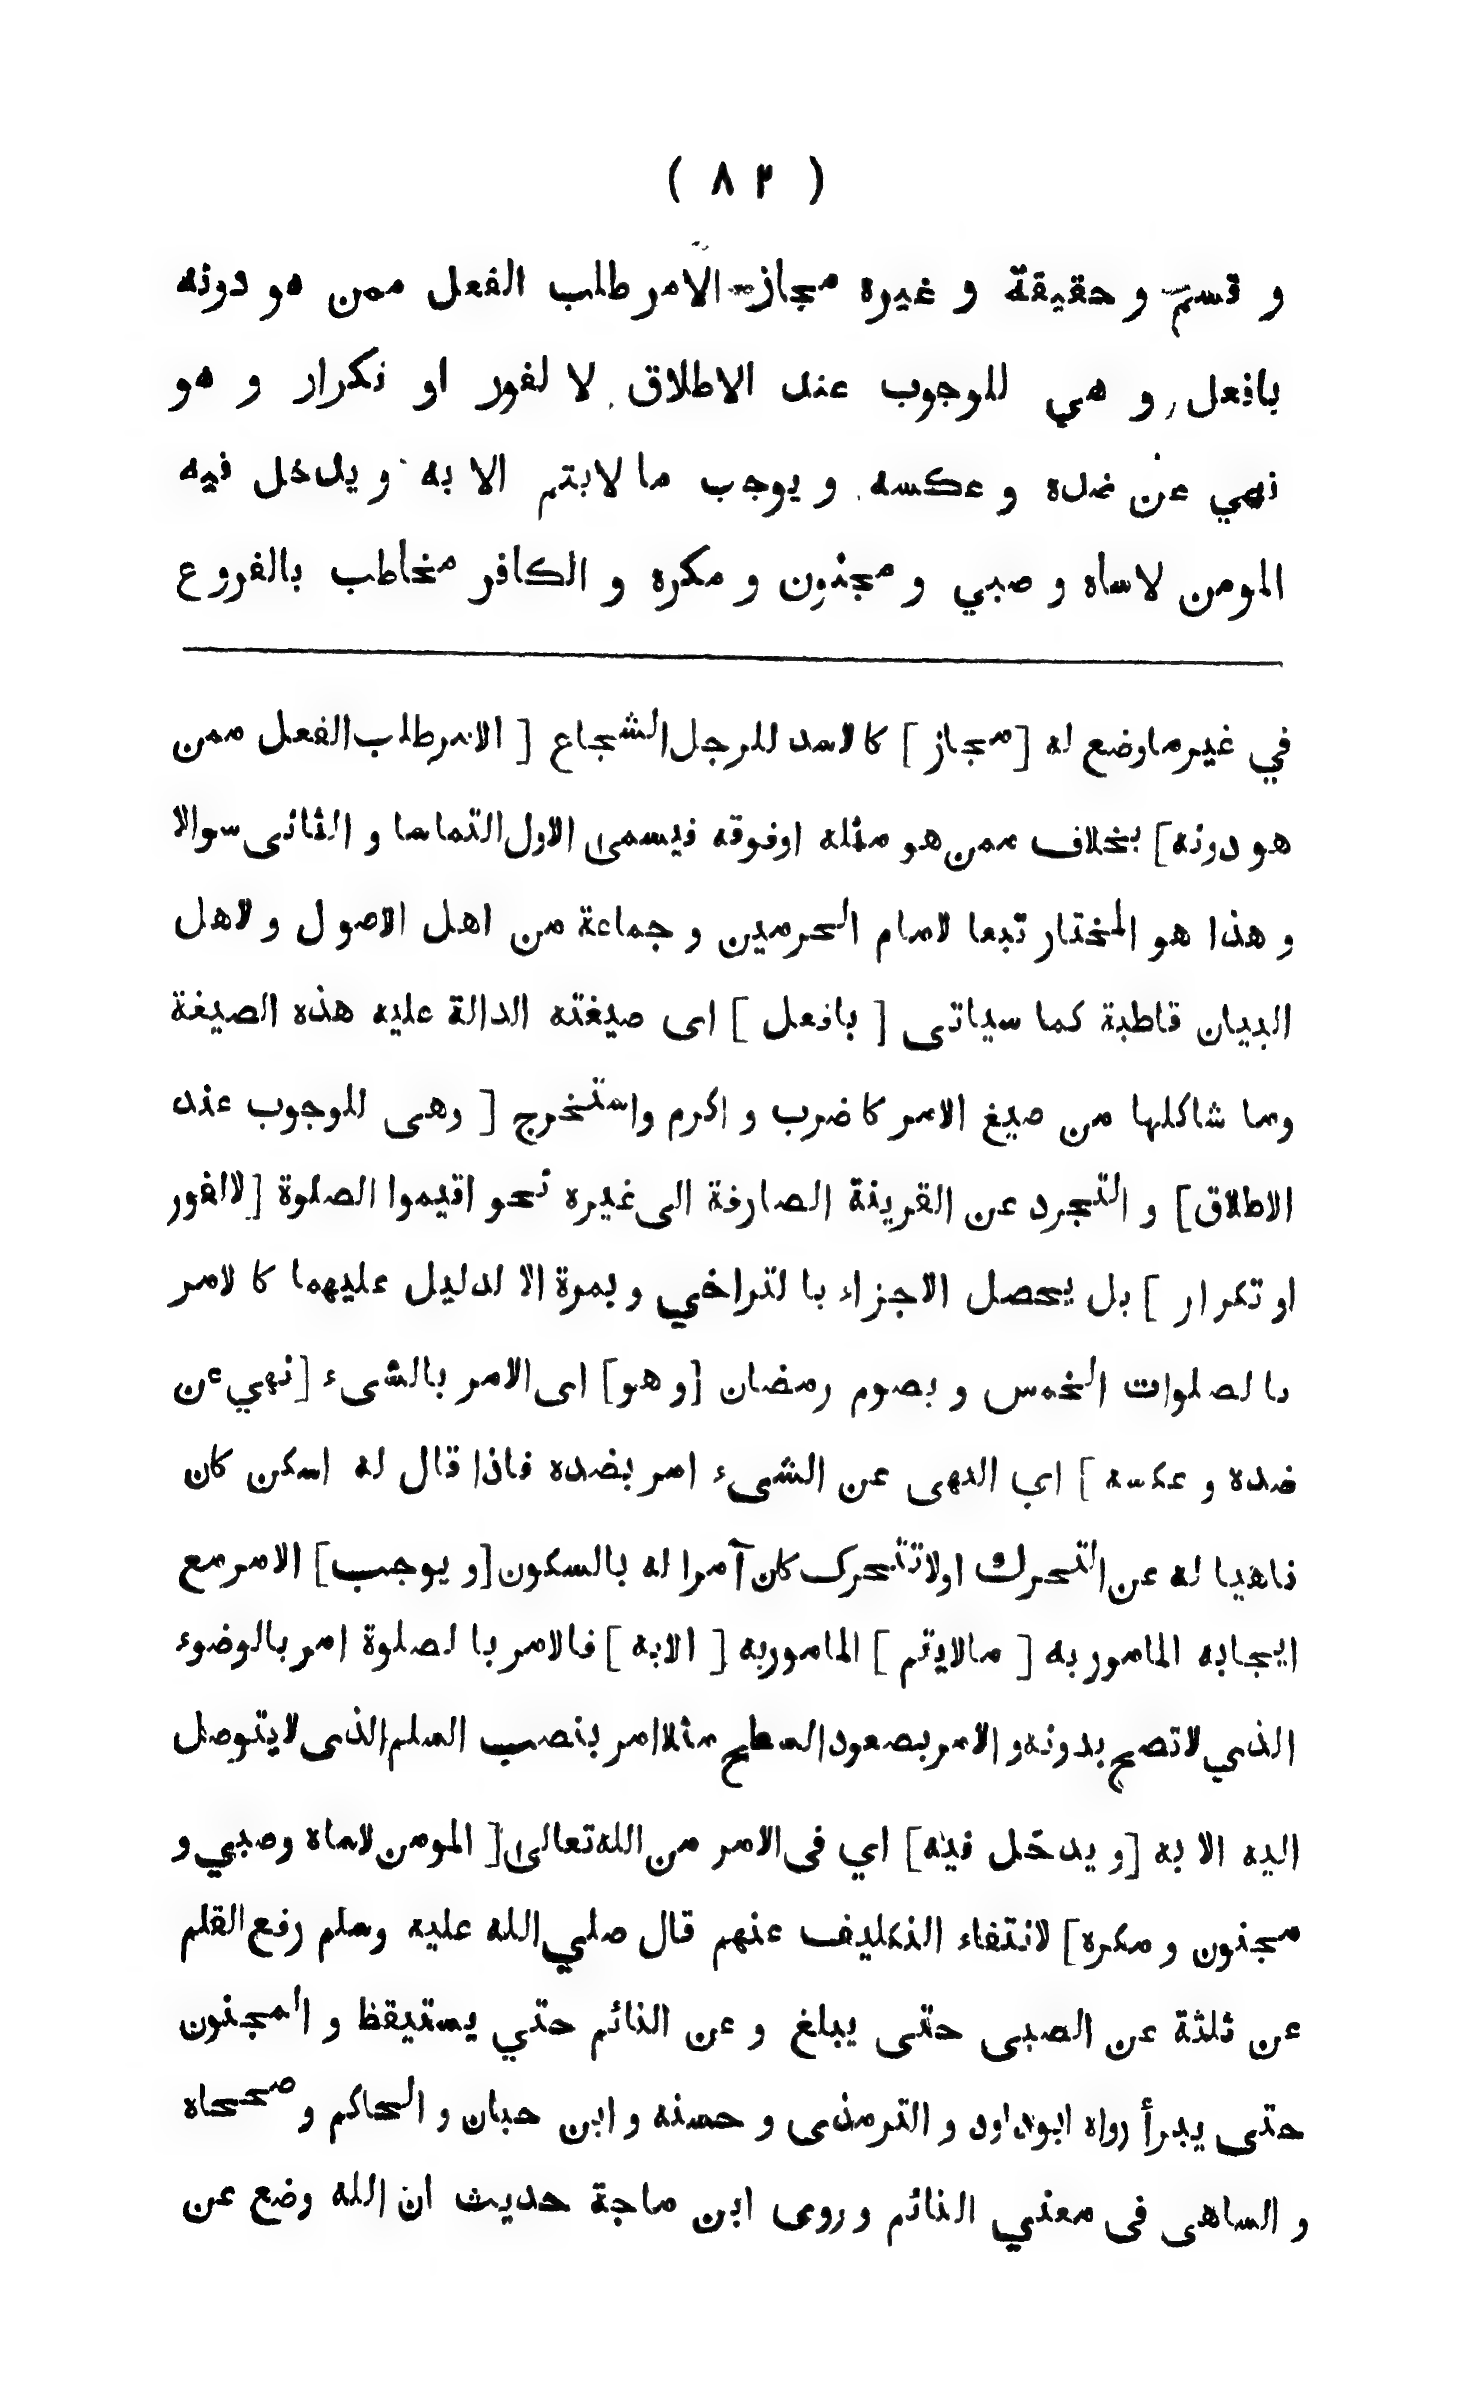 ( ٨٢ )
و قسم و حقيقة و غيره مجاز - الامر طلب الفعل ممن هو دونه
بافعل و هي للوجوب عند الاطلاق لا لفور او تكرار و هو
نهي عن ضده و عكسه و يوجب ما لايتم الا به و يدخل فيه
المومن لاساه و صبي و مجنون و مكره و الكافر مخاطب بالفروع
في غير ماوضع له [مجاز] كالاسد للرجل الشجاع [ الامر طلب الفعل ممن
هو دونه] بخلاف ممن هو مثله اوفوقه فيسمى الاول التماسا و الثانى سوالا
و هذا هو المختار تبعا لامام الحرمين و جماعة من اهل الاصول و لاهل
البيان قاطبة كما سياتى [ بافعل ] اى صيغته الدالة عليه هذه الصيغة
وما شاكلها من صيغ الامر كاضرب و اكرم واستخرج [ وهى للوجوب عند
الاطلاق] و التجرد عن القرينة الصارفة الى غيره نحو اقيموا الصلوة [لا الفور
او تكرار ] بل يحصل الاجزاء با لتراخي و بمرة الا لدليل عليهما كا لامر
با لصلوات الخمس و بصوم رمضان [و هو] اى الامر بالشىء [نهي عن
ضده و عكسه ] اي النهى عن الشىء امر بضده فاذا قال له اسكن كان
ناهيا له عن التحرك اولاتتحرك كان آمرا له بالسكون [و يوجب] الامر مع
ايجابه المامور به [ مالايتم ] المامور به [ الابه ] فالامر با لصلوة امر بالوضوء
الذي لاتصح بدونه و الامر بصعود السطح مثلا امر بنصب السلم الذى لايتوصل
اليه الا به [و يدخل فيه] اي فى الامر من الله تعالى [ المومن لاساه وصبي و
مجنون و مكره] لانتفاء التكليف عنهم قال صلي الله عليه وسلم رفع القلم
عن ثلثة عن الصبى حتى يبلغ و عن النائم حتي يستيقظ و المجنون
حتى يبرأ رواه ابوداود و الترمذى و حسنه و ابن حبان و الحاكم و صححاه
و الساهى فى معني النائم و روى ابن ماجة حديث ان الله وضع عن